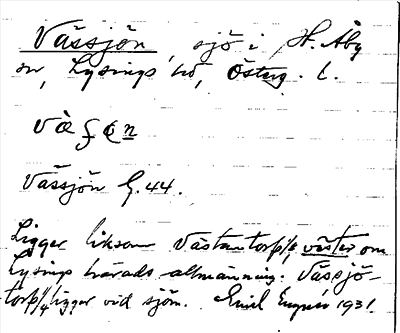 Vässjön, sjö i H. Åby
sn, Lysings hd, Österg. l.
Vässjön G. 44.
Ligger liksom Västantorp 1/4 väster om
Lysings härads allmänning. Vässjö-
torp 1/4 ligger vid sjön. Emil 1931.